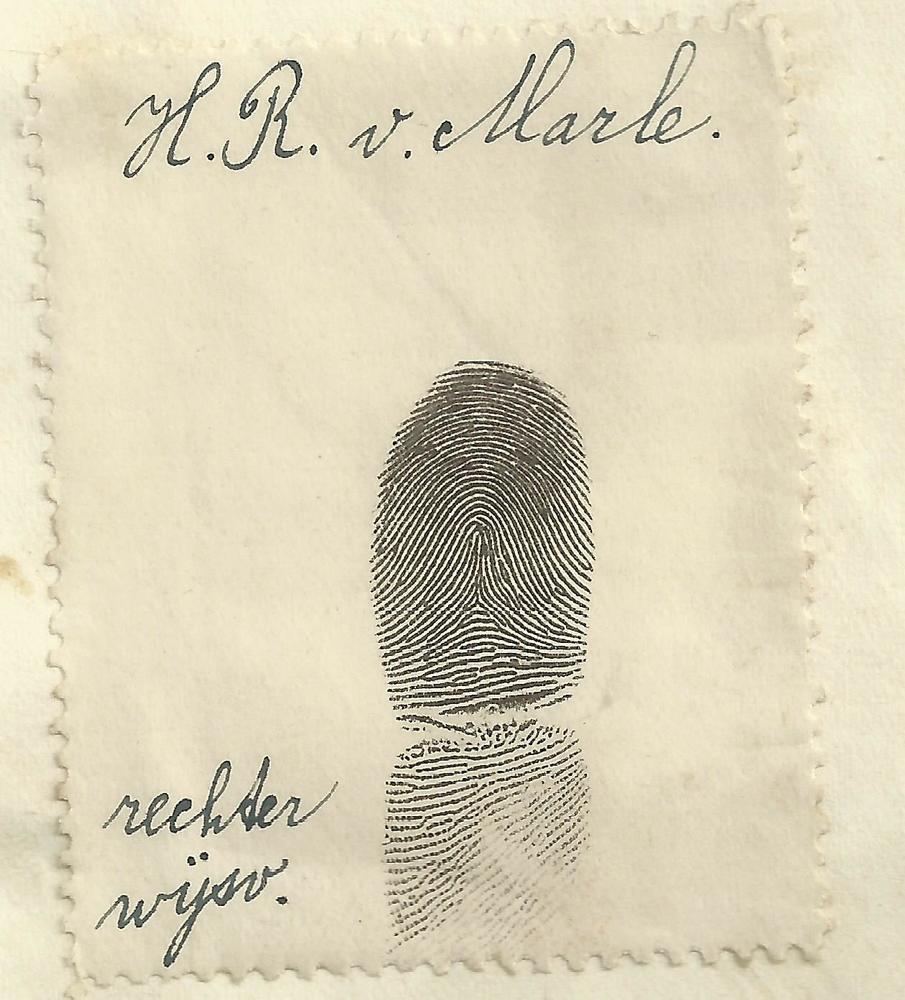 H. R. v. Marle.
rechter
wijsv.